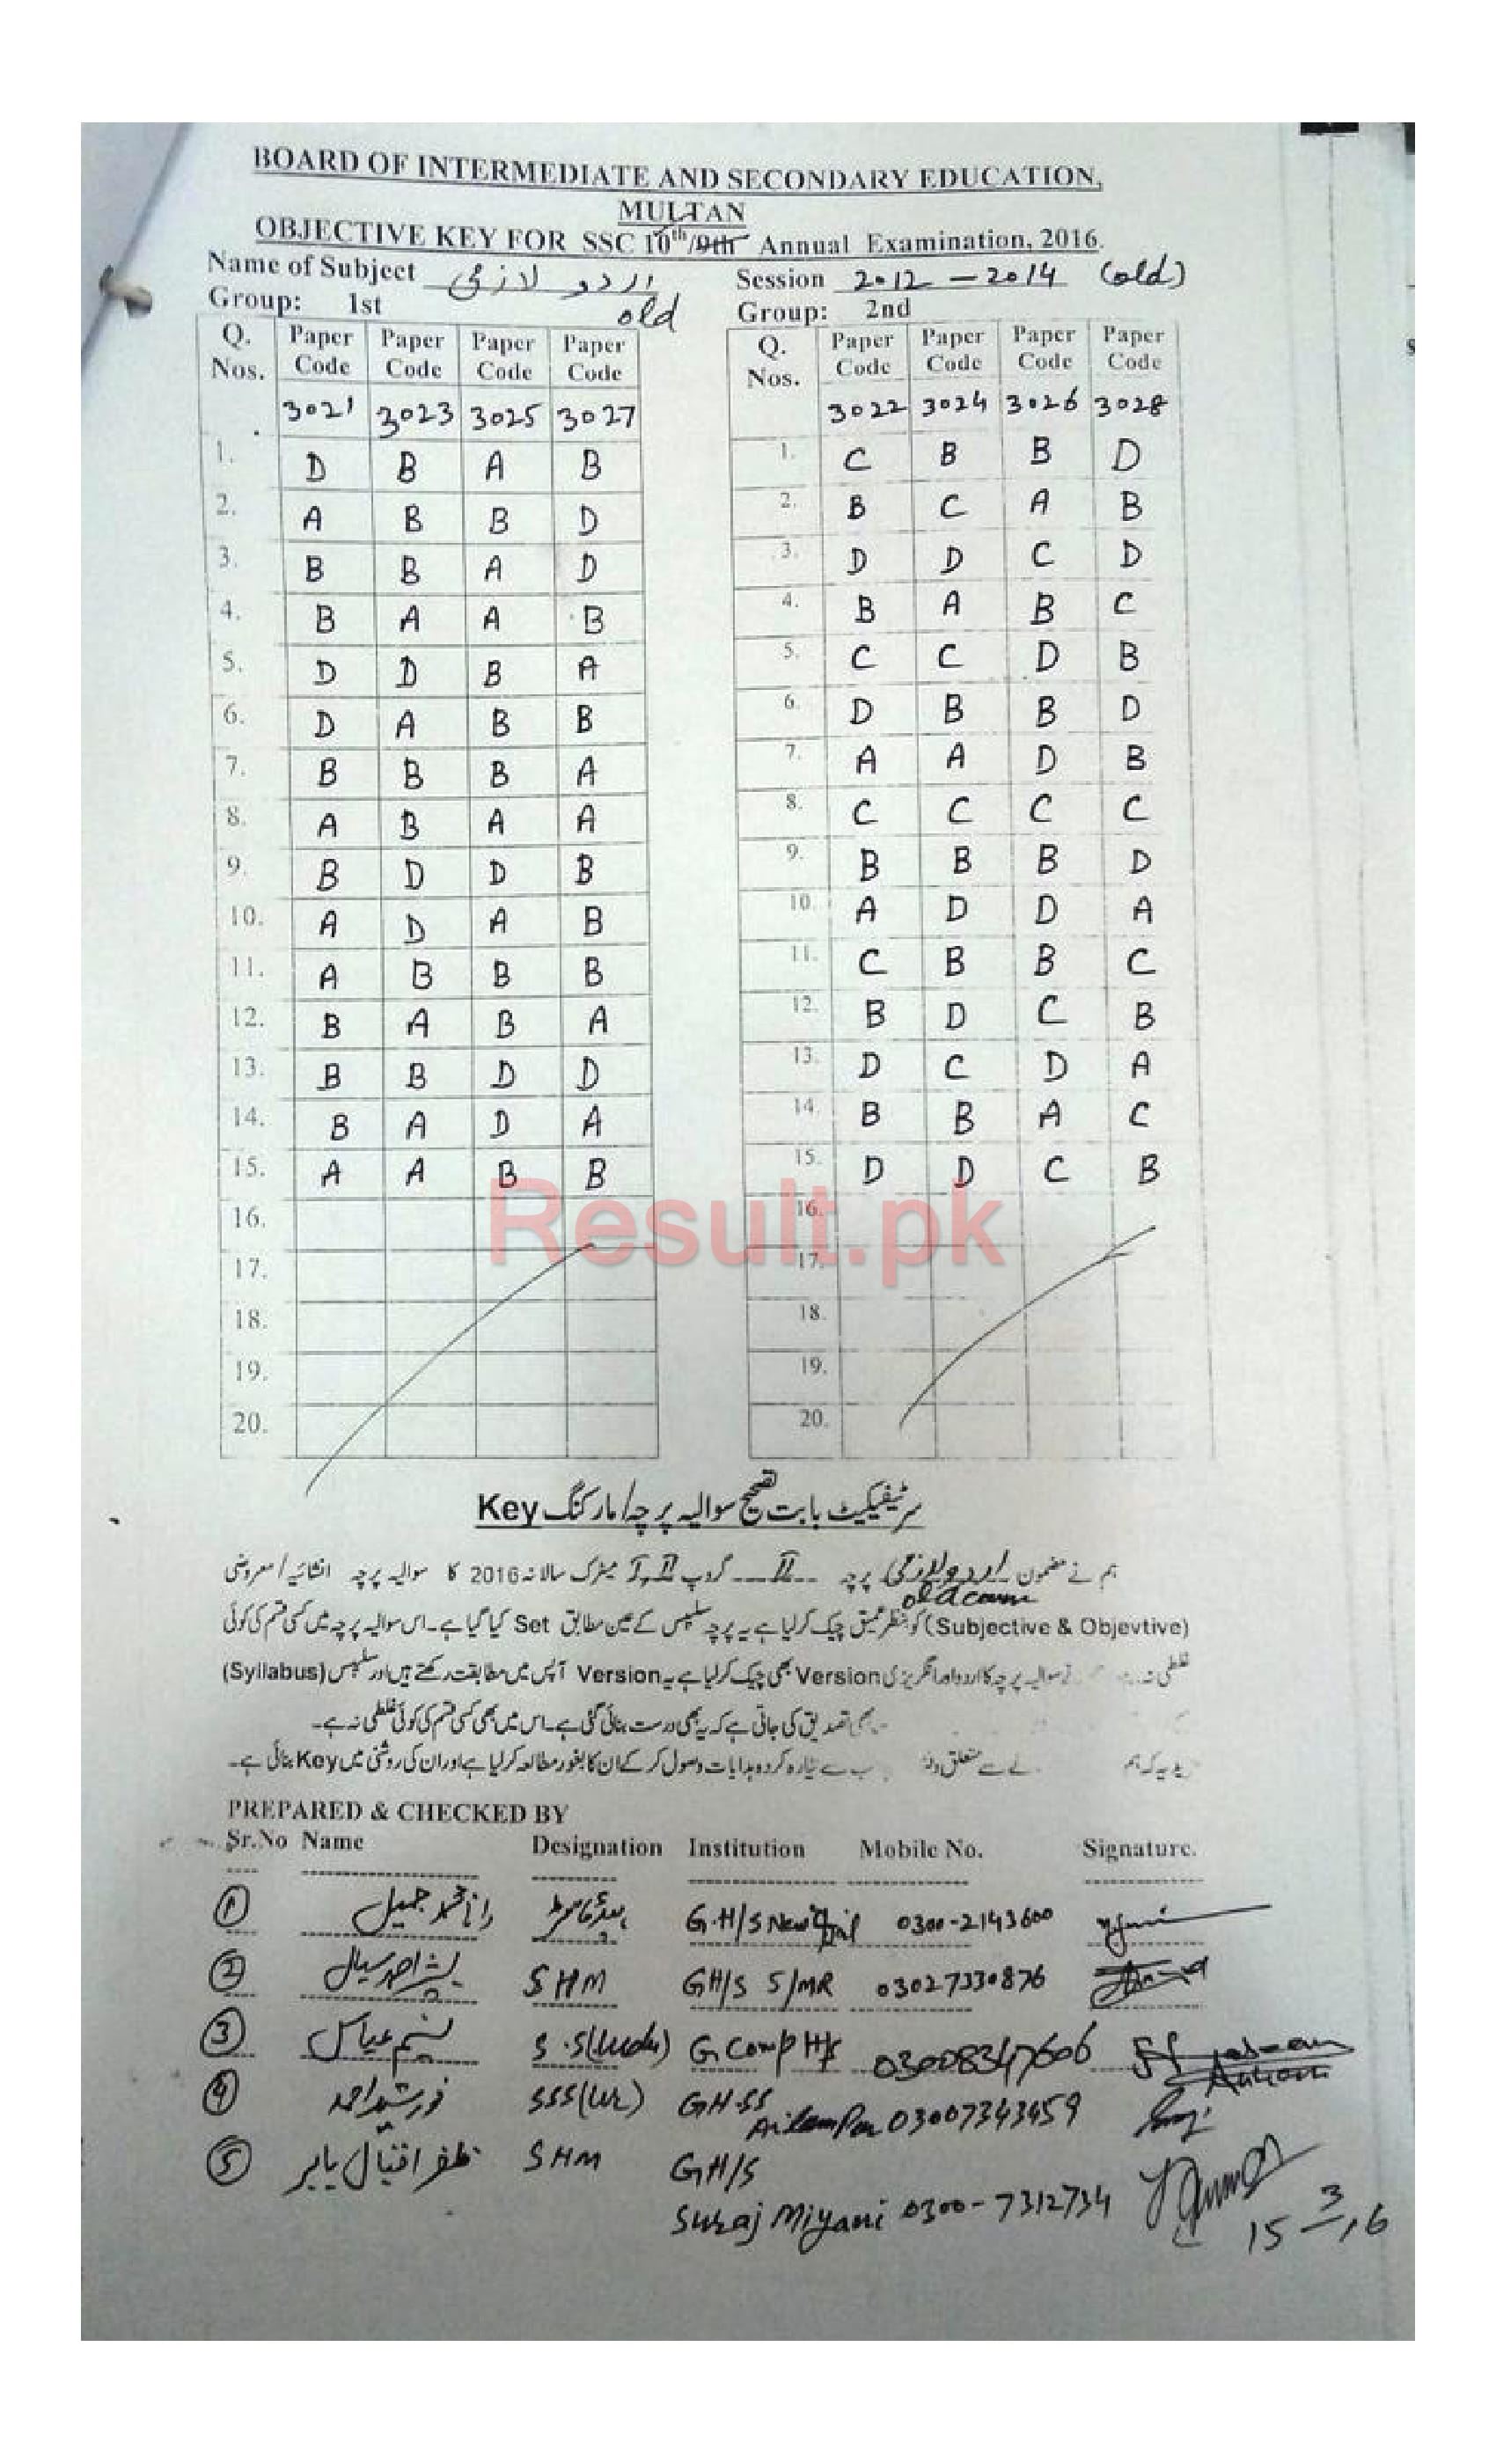 BOARD OF INTERMEDIATE AND SECONDARY EDUCATION,
MULTAN
OBJECTIVE KEY FOR SSC 10th/9th Annual Examination, 2016.
Name of Subject اردو لازمی Session 2012 – 2014 (old)
Group: 1st old Group: 2nd
Q. Nos. Paper Code Paper Code Paper Code Paper Code Q. Nos. Paper Code Paper Code Paper Code Paper Code
3021 3023 3025 3027 3022 3024 3026 3028
1. D B A B 1. C B B D
2. A B B D 2. B C A B
3. B B A D 3. D D C D
4. B A A B 4. B A B C
5. D D B A 5. C C D B
6. D A B B 6. D B B D
7. B B B A 7. A A D B
8. A B A A 8. C C C C
9. B D D B 9. B B B D
10. A D A B 10. A D D A
11. A B B B 11. C B B C
12. B A B A 12. B D C B
13. B B D D 13. D C D A
14. B A D A 14. B B A C
15. A A B B 15. D D C B
Result.pk
16. 16.
17. 17.
18. 18.
19. 19.
20. 20.
سرٹیفیکیٹ بابت تصحیح سوالیہ پرچہ/مارکنگ Key
ہم نے مضمون اردو لازمی پرچہ II گروپ I, II میٹرک سالانہ 2016 کا سوالیہ پرچہ انشائیہ/معروضی
old
(Subjective & Objevtive) کو بنظر عمیق چیک کر لیا ہے یہ پرچہ سلیبس کے عین مطابق Set کیا گیا ہے۔ اس سوالیہ پرچہ میں کسی قسم کی کوئی
غلطی نہ سوالیہ پرچہ کا اردو اور انگریزی Version بھی چیک کر لیا ہے یہ Version آپس میں مطابقت رکھتے ہیں اور سلیبس (Syllabus)
تصدیق کی جاتی ہے کہ یہ بھی درست بنائی گئی ہے۔ اس میں بھی کسی قسم کی کوئی غلطی نہ ہے۔
کہ ہم سے متعلق سے تیار کردہ ہدایات وصول کر کے ان کا بغور مطالعہ کر لیا ہے اور ان کی روشنی میں Key بنائی ہے۔
PREPARED & CHECKED BY
Sr.No Name Designation Institution Mobile No. Signature.
1 رانا محمد جمیل G.H/S New 0300-2143600
2 بشیر احمد سیال SHM GH/S S/MR 03027330876
3 نسیم عباس S.S(Urdu) G Comp H/S 03008347606
4 خورشید احمد SSS(Ur) GH.SS 03007343459
5 ظفر اقبال بابر SHM GH/S
Suraj Miyani 0300-7312734
15 3 16